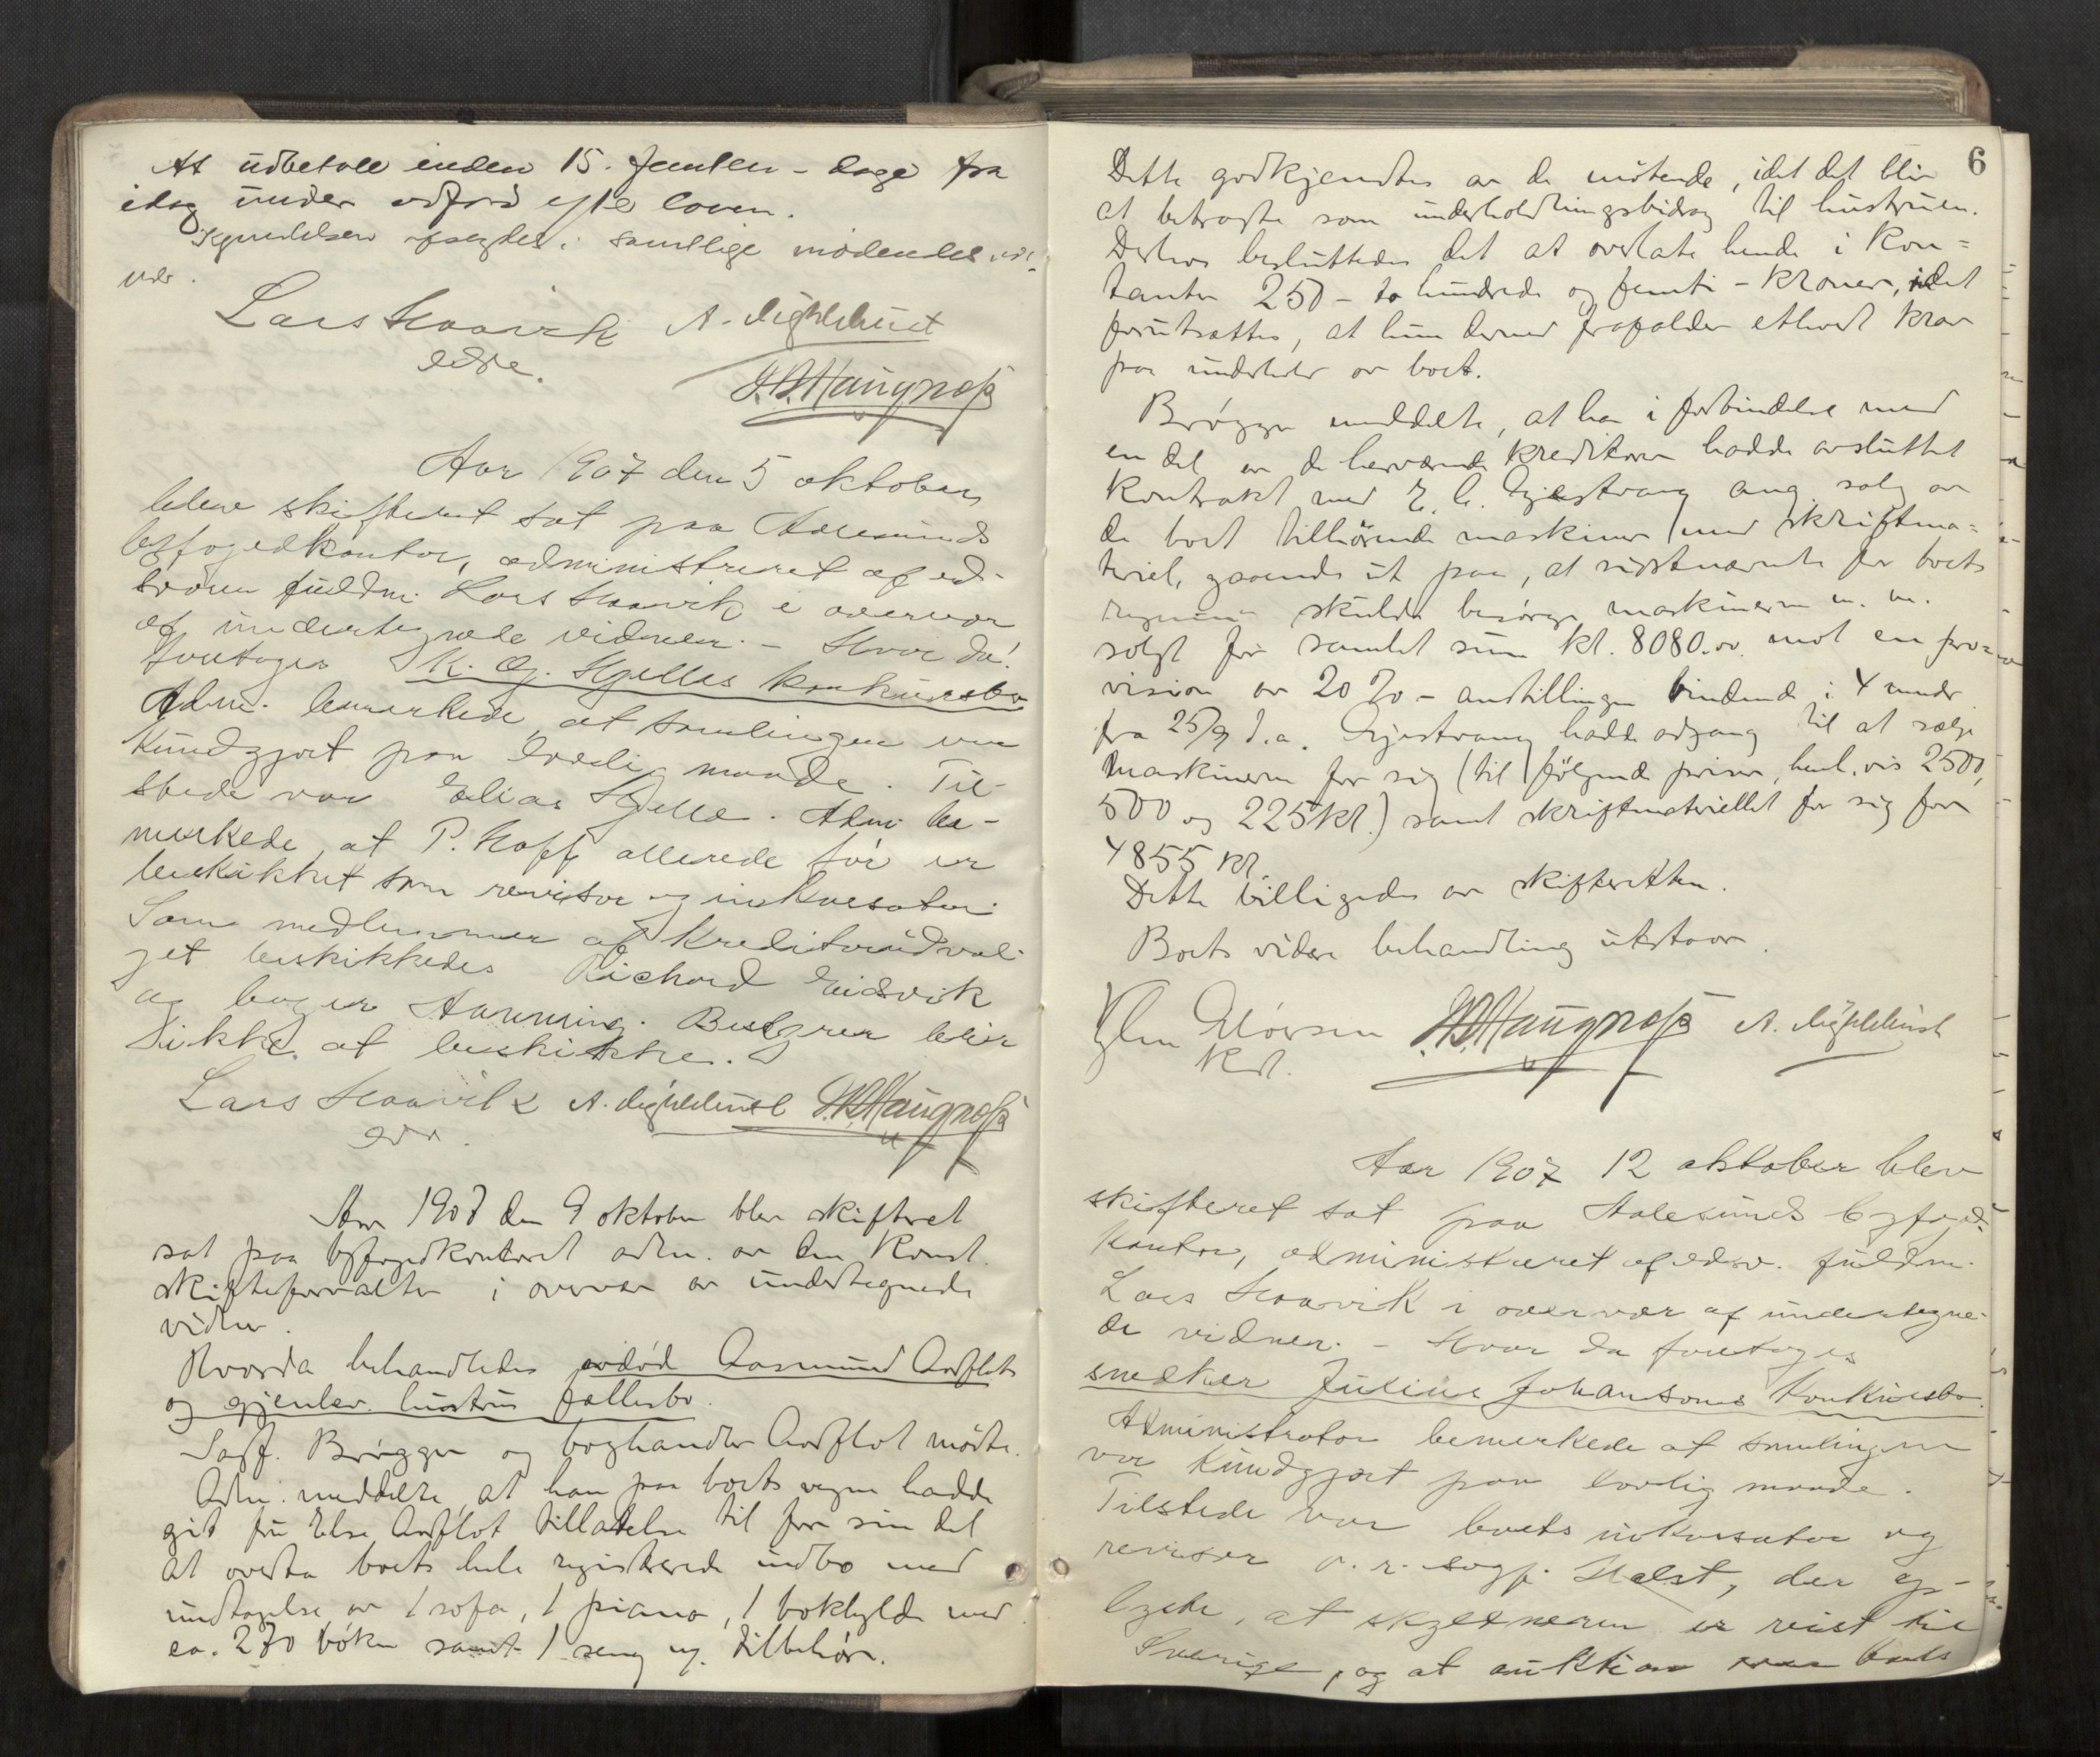 At udbetale inden 15. femten - dage fra
idag under adfærd efter loven.
Kjendelsen afsagdes i samtlige mødendes
vær.
Lars Haavik A.
edsv.
Aar 1907 den 5 oktober
blev skifteret sat paa Aalesunds
byfogedkontor, administreret af ed-
svoren fuldm. Lars Haavik i overvær
af undertegnede vidner. – Hvor da:
foretoges K. Gj. Hjelles konkursbo
Adm. bemerkede, at samlingen var
kundgjort paa lovlig maade. Til-
stede var Elias Hjelle. Adm. be-
merkede, at P. Hoff allerede før er
beskikket som revisor og inkassator.
Som medlemmer af kreditorudval-
get beskikkedes Richard Eidsvik
og bager Hanning. Bestyrer blir
ikke at beskikke.
Lars Haavik A.
edsv.
Aar 1907 den 9 oktober blev skifteret
sat paa byfogedkontoret adm. av den konst.
skifteforvalter i overvær av undertegnede
vidner.
Hvorda behandledes avdød Aasmund Aarflots
og gjenlev. hustrus fællesbo.
Sagf. Brøgger og boghandler Aarflot møtte.
Adm. meddelte, at han paa boets vegne hadde
git fru Else Aarflot tilladelse til for sin del
at overta boets hele registrerede indbo med
undtagelse av 1 sofa, 1 piano, 1 bokhylde med
ca. 270 bøker samt 1 seng og tilbehør.
6
Dette godkjendtes av de møtende, idet det blir
at betragte som underholdningsbidrag til hustruen.
Derhos besluttedes det at overlate hende i kon=
tanter 250 - to hundrede og femti - kroner, idet
forutsættes, at hun dermed frafalder ethvert krav
paa underhold av boet.
Brøgger meddelte, at han i forbindelse med
en del av de herværende kreditorer hadde avsluttet
kontrakt med E. A. Gjestvang ang. salg av
de boet tilhørende maskiner med skriftma=
teriel, gaaende ut paa, at sidstnævnte for boets
regning skulde besørge maskinerne m. m.
solgt for samlet sum kr. 8080.00 mot en pro=
vision av 20 % – anstillingen bindende i 4 mndr
fra 25/9 d.a. Gjestvang hadde adgang til at sælge
maskinerne for sig (til følgende priser, henh.vis 2500,
500 og 225 kr.) samt skriftmateriellet for sig for
4855 kr.
Dette billigedes av skifteretten.
Boets videre behandling utstaar.
A.
kst.
Aar 1907 12 oktober blev
skifteret sat paa Aalesunds byfoged-
kontor, administreret af edsv. fuldm.
Lars Haavik i overvær af undertegne-
de vidner. – Hvor da foretoges
snedker Julius Johansons konkursbo.
Administrator bemerkede at samlingen
var kundgjort paa lovlig maade.
Tilstede var boets inkassator og
revisor o. r. sagf. Halst, der op-
lyste, at skyldneren er reist til
Sverige, og at auktion over boets